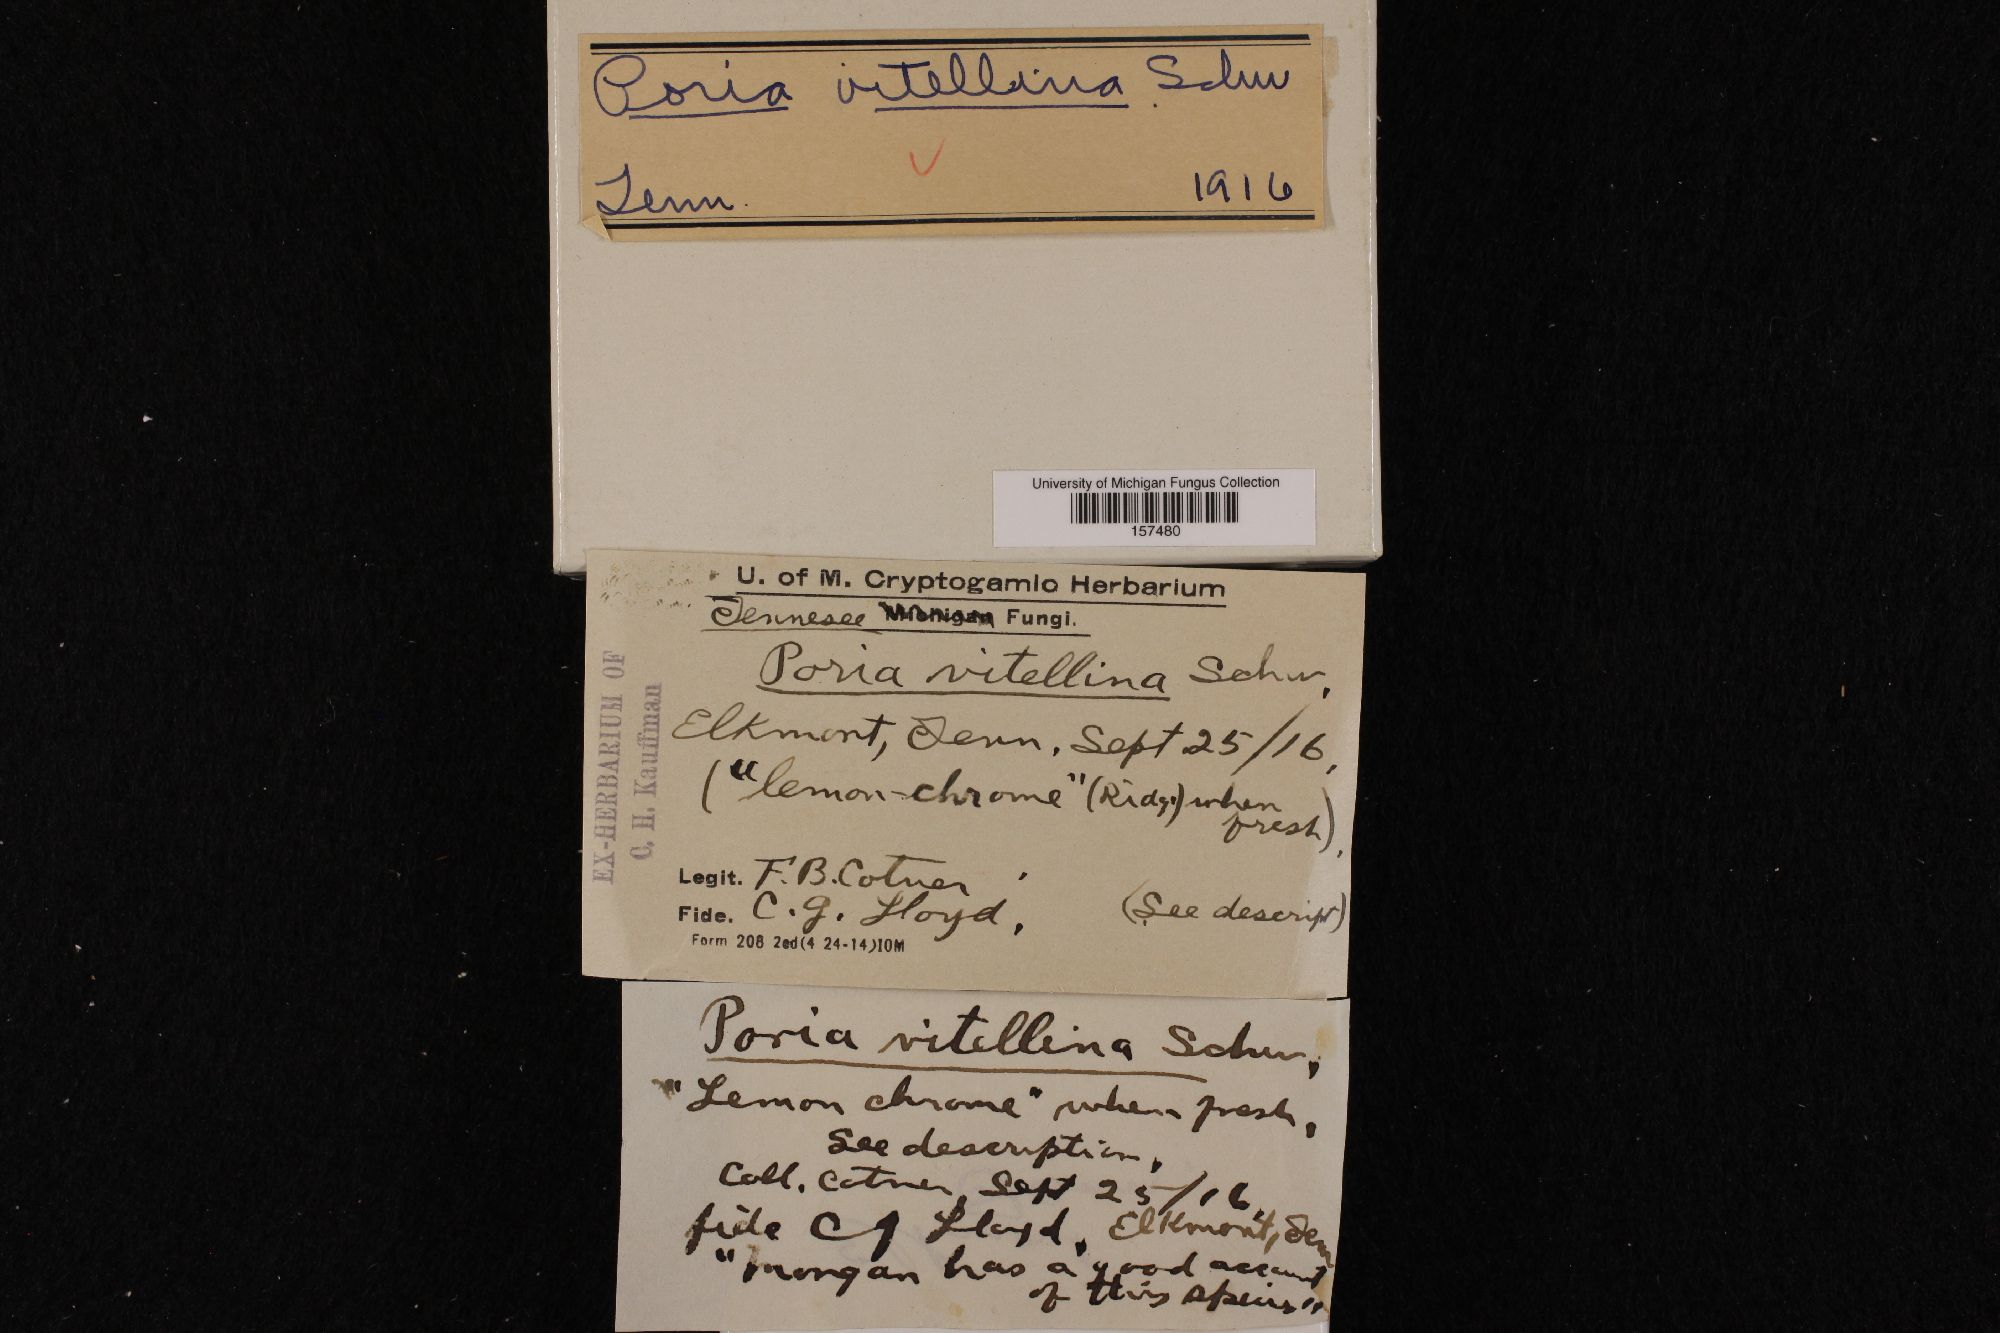 Poria vitellina Schw
Tenn. 1916
University of Michigan Fungus Collection
157480
U. of M. Cryptogamic Herbarium
Tennesee Michigan Fungi.
Poria vitellina Schw.
Elkmont, Tenn. Sept 25/16,
("lemon-chrome" (Ridg.) when
fresh).
EX-HERBARIUM OF
C. H. Kauffman
Legit. F.B. Cotner
Fide. C. G. Lloyd, (See descript)
Form 208 2ed(4 24-14)10M
Poria vitellina Schw,
"Lemon chrome" when fresh,
See description,
Coll. Cotner, Sept 25/16,
fide C G Lloyd, Elkmont, Tenn
"Morgan has a good account
of this species"